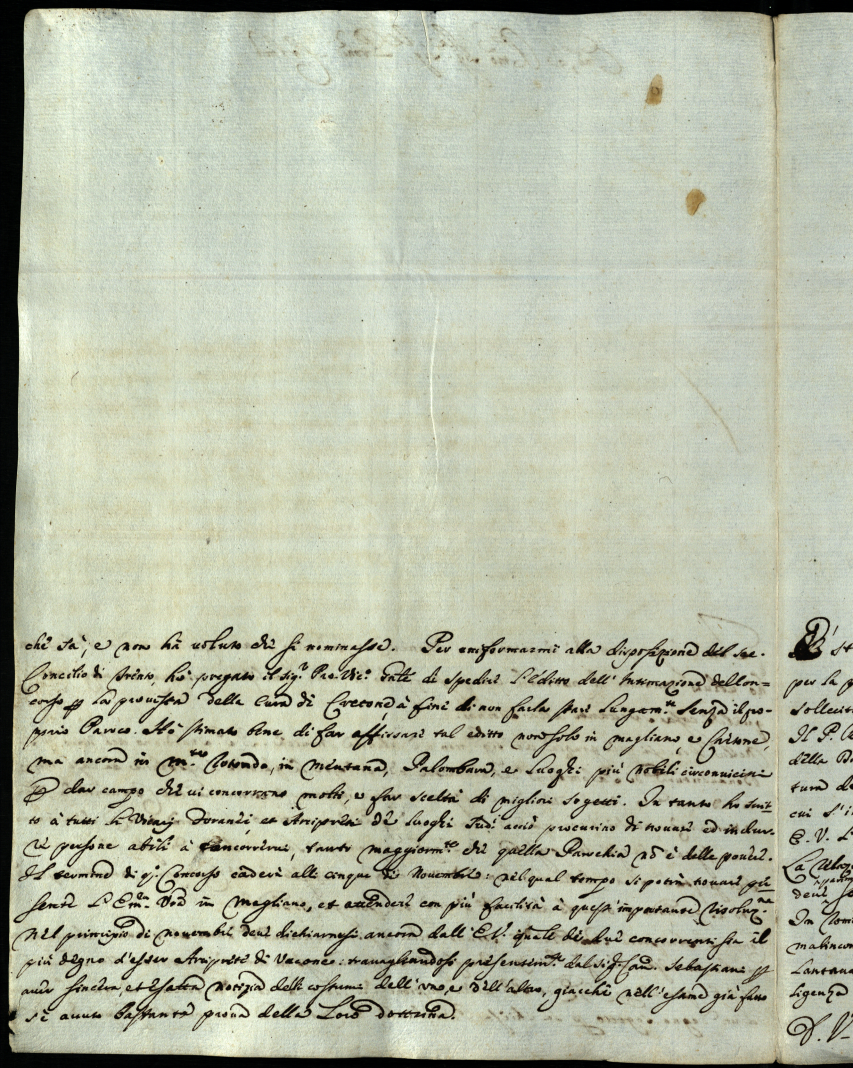 che sà, e non hà voluto che si nominasse. Per conformarmi alla disposizione del Sac.
Concilio di Trento, hò pregato il Sig.r Pro. Vic.o Gnle di spedire l'Editto dell'Intimazione del Con=
corso per la provista della Cura di Cretone à fine di non farla stare lungam.te senza il pro-
prio Paroco. Hò stimato bene di far affissare tal editto non solo in magliano, e Cretone,
ma ancora in M.te Rotondo, in mentana, Palombara, e Luoghi più nobili circonvicini
per dar campo che vi concorrano molti, e far scelta di migliori sogetti. In tanto hò scrit-
to à tutti li Vicarij foranei et Arcipreti de luoghi acciò procurino di trovare ed indur-
vi persone abili à concorrervi, tanto maggiorm.te che quella Parochia nõ è delle povere.
Il termine di q.o Concorso caderà alli cinque di Novembre: nel qual tempo si potrà trovare pre
sente l'Em.a Vra in Magliano, et attendere con più facilità à questa importante risoluz.ne
Nel principio di novembre deve dichiararsi ancora dall'E.V. quale de due concorrenti sia il
più degno d'esser Arciprete di Vacone: travagliandosi presentem.te dal Sig.r Sebastiani per
aver sincera, et esatta notizia delli costumi dell'uno, e dell'altro, giacche nell'esame già fatto
si è avuto bastante prova della Loro dottrina.
per la p
sollecit
Il P.
della
tura de
cui s'i
E. V. L
malincon
ligenza